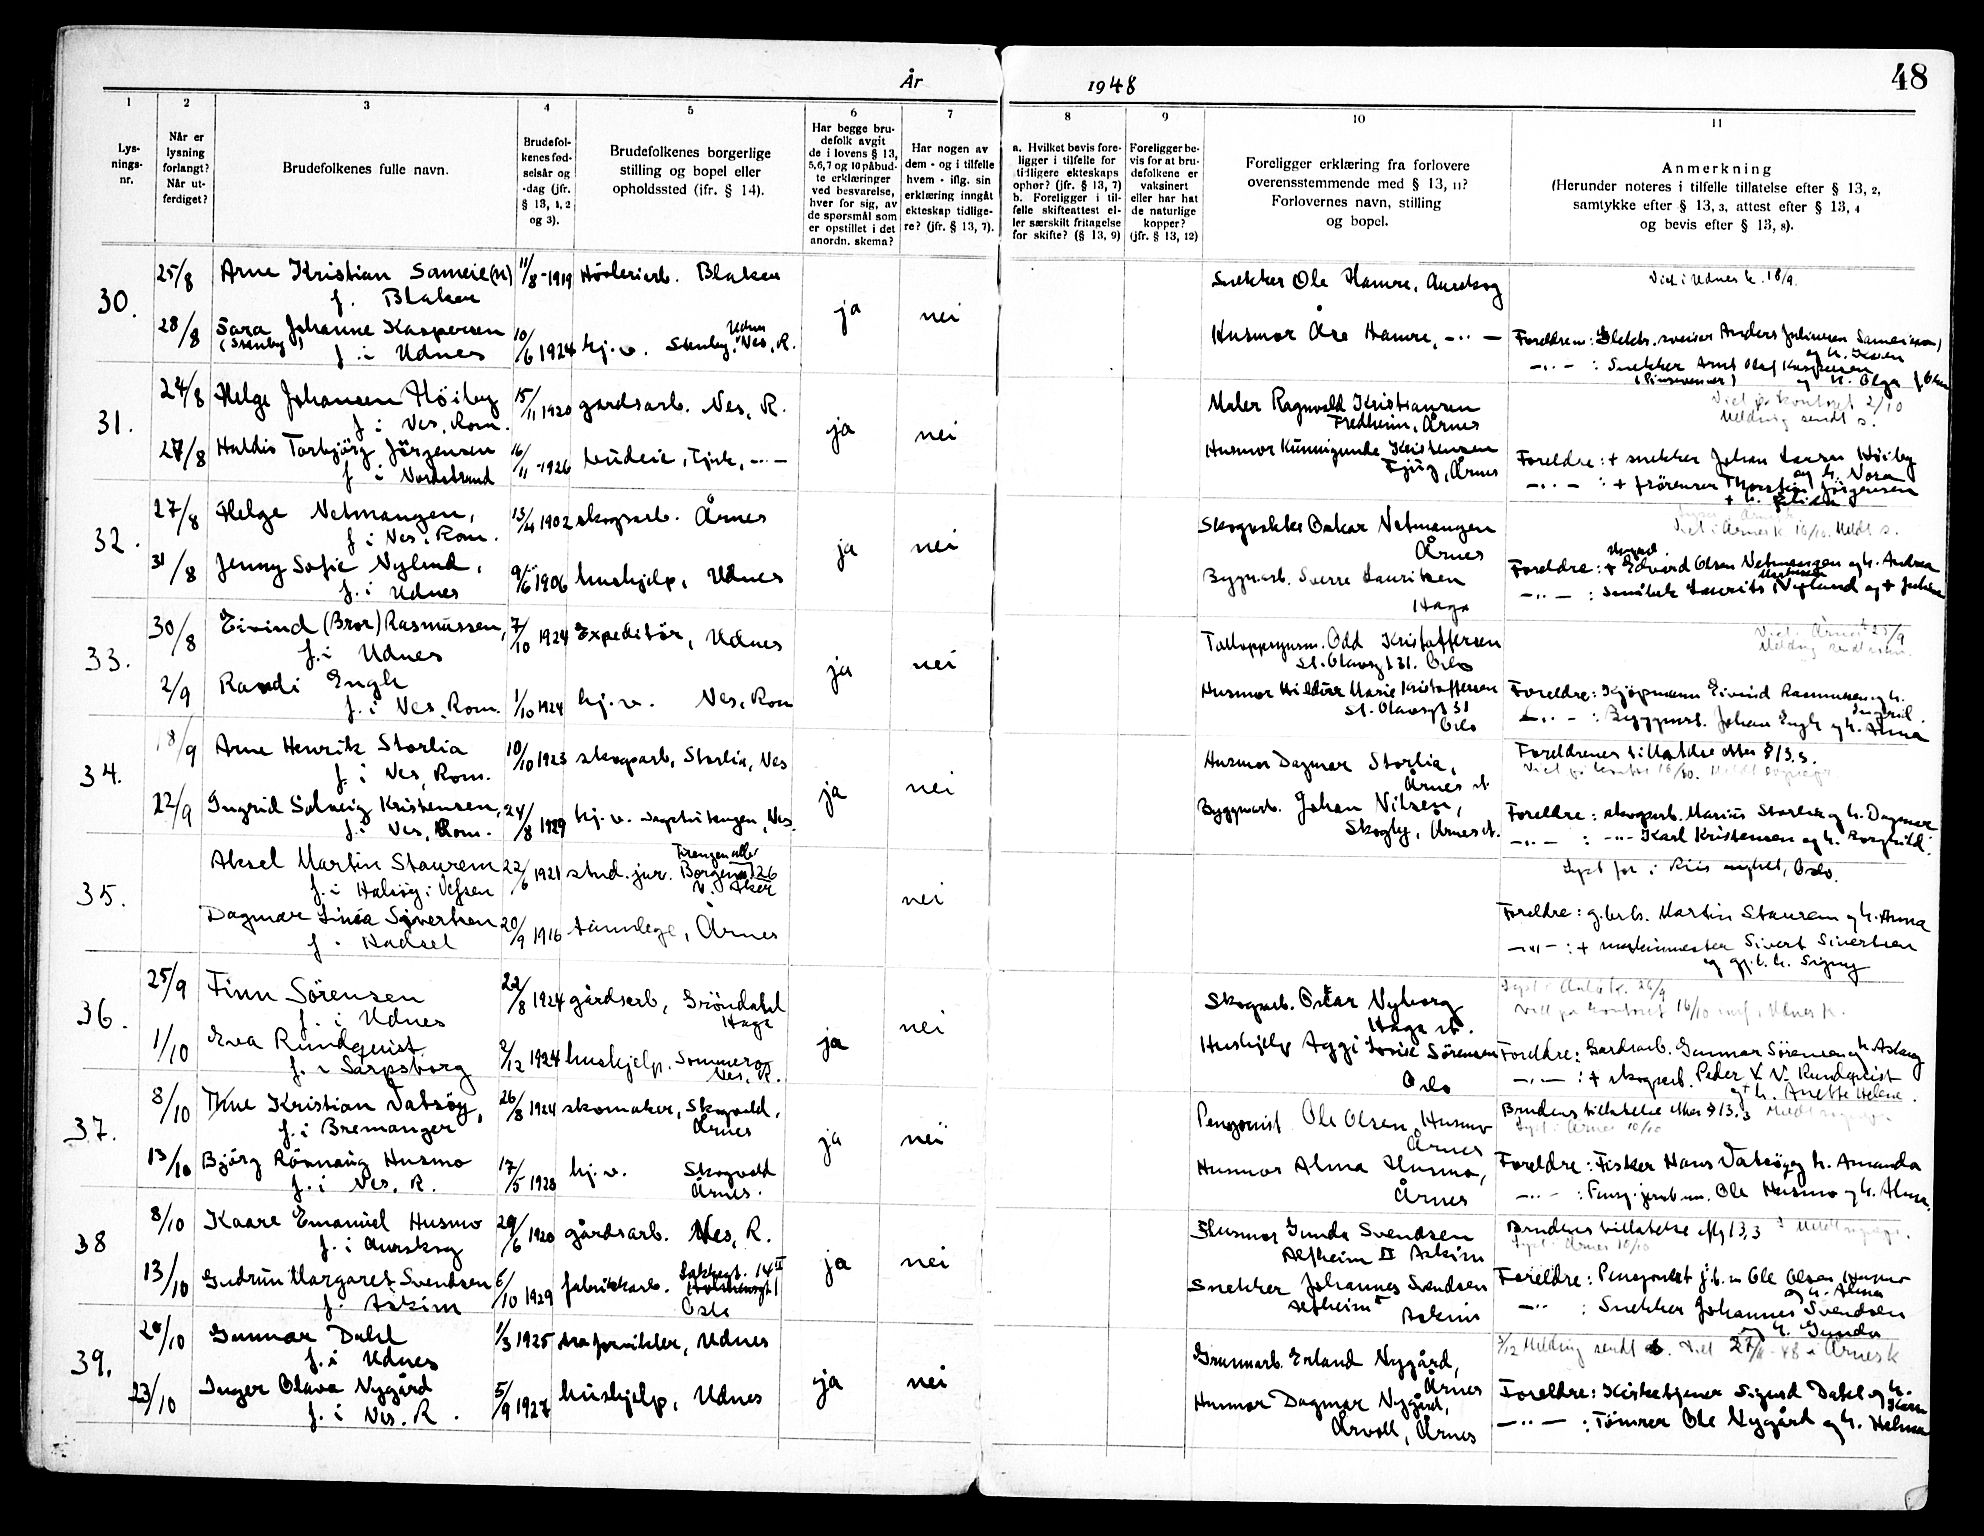 År 1948
48
1
2
3
4
5
6
7
8
9
10
11
Lys-
nings-
nr.
Når er
lysning
forlangt?
Når ut-
ferdiget?
Brudefolkenes fulle navn.
Brudefol-
kenes fød-
selsår og
-dag (jfr.
§ 13, 1, 2
og 3).
Brudefolkenes borgerlige
stilling og bopel eller
opholdssted (jfr. § 14).
Har begge bru-
defolk avgit
de i lovens § 13,
5,6,7 og 10 påbud-
te erklæringer
ved besvarelse,
hver for sig, av
de spørsmål som
er opstillet i det
anordn. skema?
Har nogen av
dem - og i tilfelle
hvem - iflg. sin
erklæring inngått
ekteskap tidlige-
re? (jfr. § 13, 7).
a. Hvilket bevis fore-
ligger i tilfelle for
tidligere ekteskaps
ophør? (jfr. § 13, 7)
b. Foreligger i til-
felle skifteattest el-
ler særskilt fritagelse
for skifte? (§ 13, 9)
Foreligger be-
vis for at bru-
defolkene er
vaksinert
eller har hat
de naturlige
kopper?
(jfr. § 13, 12)
Foreligger erklæring fra forlovere
overensstemmende med § 13, 11?
Forlovernes navn, stilling
og bopel.
Anmerkning
(Herunder noteres i tilfelle tillatelse efter § 13, 2,
samtykke efter § 13, 3, attest efter § 13, 4
og bevis efter § 13, 8).
30.
25/8 Arne Kristian Sameie(n) 11/8-1919 Blaker
f. Blaker
ja nei
Snekker Ole Hamre, Aurskog
Viet i Udnes k. 18/9.
28/8 Sara Johanne Kaspersen 10/6 1924 hj.v. Stenby, Udnes Ves, R.
(Stenby) f. i Udnes
Husmor Åse Hamre, -"-
Anders Julius
og h. Karen
-"- : Snekker Arnt Olaf Kaspersen
og h. Olga
31.
24/8 Helge Johansen Höiby 15/11 1920 gårdsarb. Nes, R.
f. i Nes, Rom.
ja nei
Maler Ragnvald Kristiansen
Fredheim, Årnes
Viet på kontoret 2/10
Melding sendt s.
27/8 Haldis Torbjörg Jörgensen 16/11-1926 budeie, -"-
f. i Nordstrand
Husmor Kunnigunde Kristensen
Årnes
Foreldre: + snekker Johan Höiby
og h. Nora
-"- : + Thorstein Jörgensen
32.
27/8 Helge Netmangen, 13/4 1902 skogsarb. Årnes
f. i Nes, Rom.
ja nei
Skogvokter Oskar Netmangen
Årnes
Viet i Årnes k 16/10. Meldt s.
31/8 Jenny Sofie Nylund, 9/6 1906 hushjelp, Udnes
f. i Udnes
Byggnarb. Sverre Lauritsen
Haga
Foreldre: + Edvard Olsen Netmangen og h. Andrea
-"- : Laurits Nylund og +
33.
30/8 Eivind (Bror) Rasmussen, 7/10 1924 Expeditör, Udnes
f. i Udnes
ja nei
Odd Kristoffersen
St. Olavsgt 31. Oslo
2/9 Randi Engh 1/10 1924 hj.v. Nes, Rom
f. i Nes, Rom.
Husmor Hildur Marie Kristoffersen
St. Olavsgt 31
Oslo
Foreldre: Kjöpmann Eivind Rasmussen og h.
Ingrid.
-"- : Byggnarb. Johan Engh og h. Anna
34.
18/9 Arne Henrik Storlia 10/10 1923 skogsarb, Storlia, Nes
f. i Nes, Rom.
ja nei
Husmor Dagmar Storlia,
Årnes st
Foreldrenes tillatelse etter § 13.3.
22/9 Ingrid Solveig Kristensen, 24/8 1929 hj.v. Nes.
f. i Nes, Rom.
Byggnarb. Johan Nilsen,
Skogly, Årnes st.
Foreldre: skogsarb. Marius Storlia og h. Dagmar
-"- : -"- Karl Kristensen og h. Borghild.
35.
Aksel Martin Staurem 22/6 1921 stud. jur. Borgenvn 26
f. i Halsöy i Vefsen V. Aker
nei
Lyst for i Riis sognek, Oslo.
Dagmar Linéa Sivertsen 20/9 1916 tannlege, Årnes
f. i Hadsel
Foreldre: g.brb. Martin Staurem og h. Anna
-"- : + maskinmester Sivert Sivertsen
og h. Signy
36.
25/9 Finn Sörensen 22/8 1924 gårdsarb, Gröndahl
f. i Udnes Haga
ja nei
Skogsarb. Oskar Nyborg
Haga st.
Viet på kontoret 16/10
1/10 Eva Rundquist 2/12 1924 hushjelp.
f. i Sarpsborg Nes. R.
Hushjelp Aggi Lovise Sörensen
Oslo
Foreldre: Gårdsarb. Gunnar Sörensen og h. Aslaug
-"- : + skogsarb. Peder Rundquist
og h. Anette Helene.
37.
8/10 Kristian Vatsöy, 26/8 1924 skomaker, Skogvold,
f. i Bremanger Årnes
ja nei
Pensjonist Ole Olsen Husmo
Årnes
Brudens tillatelse etter § 13.3
Lyst i Årnes 10/10
13/10 Björg Rönnaug Husmo 17/5 1928 hj.v. Skogvold
f. i Nes. R. Årnes.
Husmor Alma Husmo,
Årnes
Foreldre: Fisker Hans Vatsöy og h. Amanda
-"- : Pensj. Ole Husmo og h. Alma
38
8/10 Kaare Emanuel Husmo 29/6 1920 gårdsarb. Nes, R.
f. i Aurskog
ja nei
Husmor Gunda Svendsen
Alfheim II Askim
Brudens tillatelse etter 13,3
13/10 Gudrun Margaret Svendsen 6/10 1929 fabrikkarb.
f. Askim Oslo
Snekker Johannes Svendsen
Alfheim Askim
Foreldre: Pensjonist Ole Olsen Husmo
og h. Alma
-"- : Snekker Johannes Svendsen
og h. Gunda
39.
20/10 Gunnar Dahl 1/3 1925 Udnes
f. i Udnes
ja nei
Grunnarb. Erland Nygård,
Årnes
Melding sendt s. Viet 27/11 -48 i Årnes k
23/10 Inger Olava Nygård 5/9 1927 hushjelp, Udnes
f. i Nes. R.
Husmor Dagmar Nygård,
Årvoll, Årnes
Foreldre: Kirketjener Sigurd Dahl og h.
Karen
-"- : Tömrer Ole Nygård og h. Helma